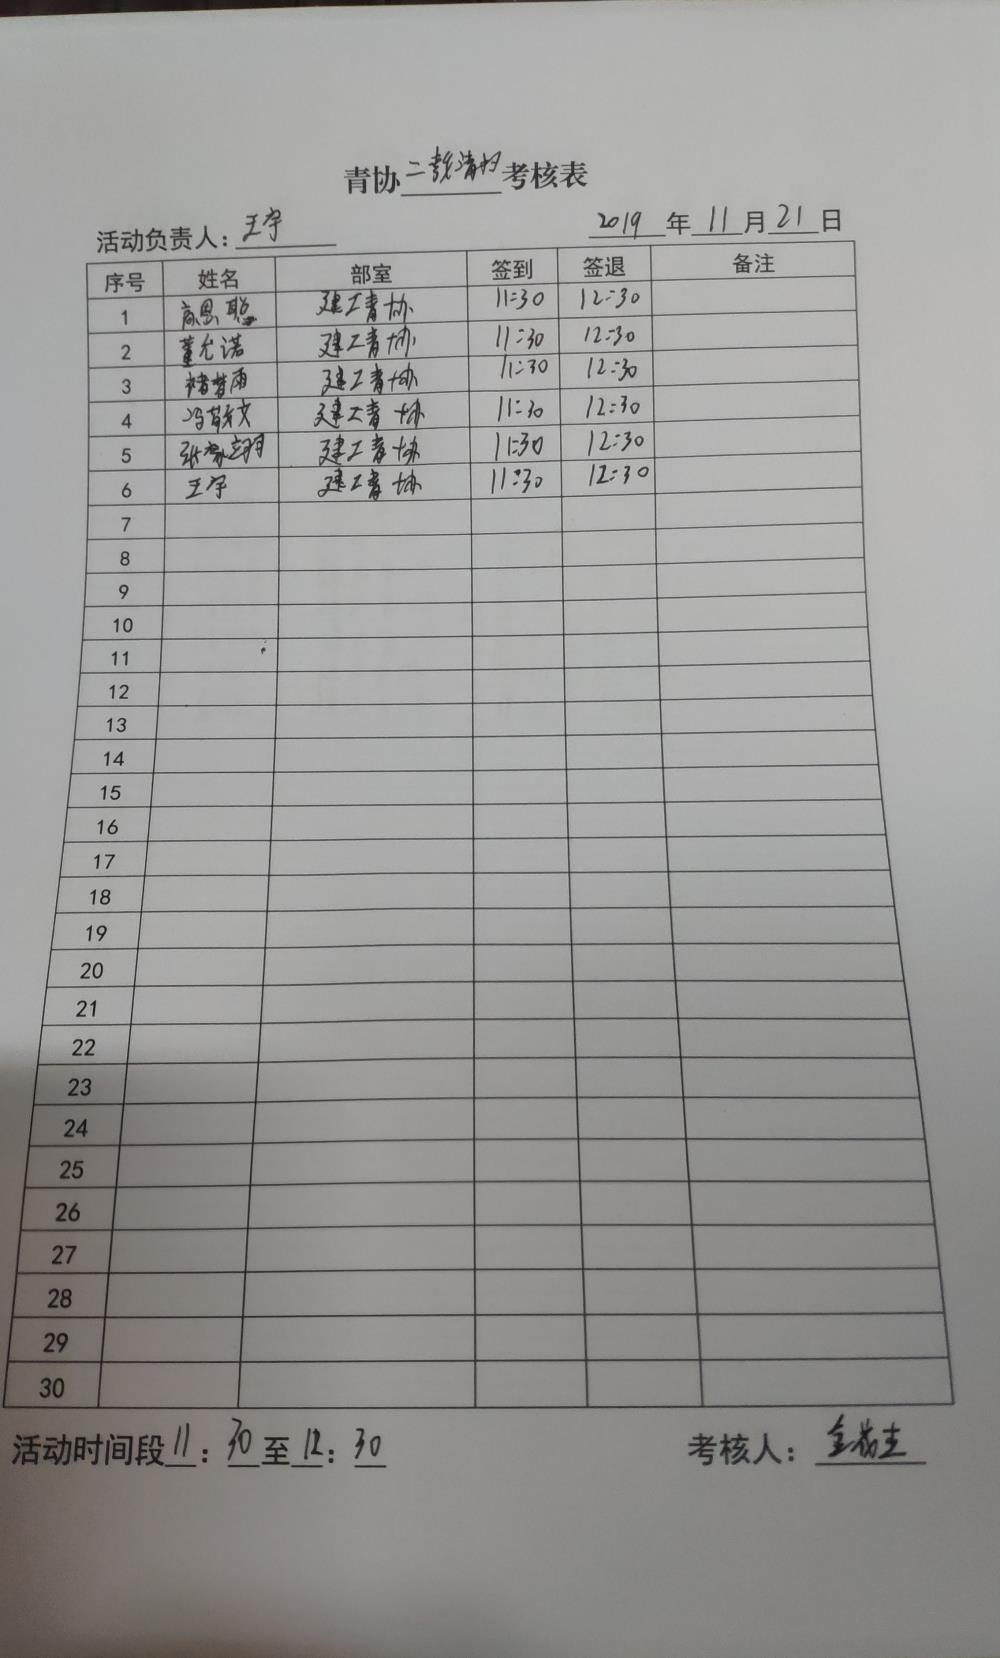 青协二教清扫考核表
活动负责人：王宇 2019年11月21日
序号 姓名 部室 签到 签退 备注
1 高思聪 建工青协 11:30 12:30
2 董允诺 建工青协 11:30 12:30
3 褚梦雨 建工青协 11:30 12:30
4 冯敬文 建工青协 11:30 12:30
5 建工青协 11:30 12:30
6 王宇 建工青协 11:30 12:30
7
8
9
10
11
12
13
14
15
16
17
18
19
20
21
22
23
24
25
26
27
28
29
30
活动时间段11：30至12：30 考核人：